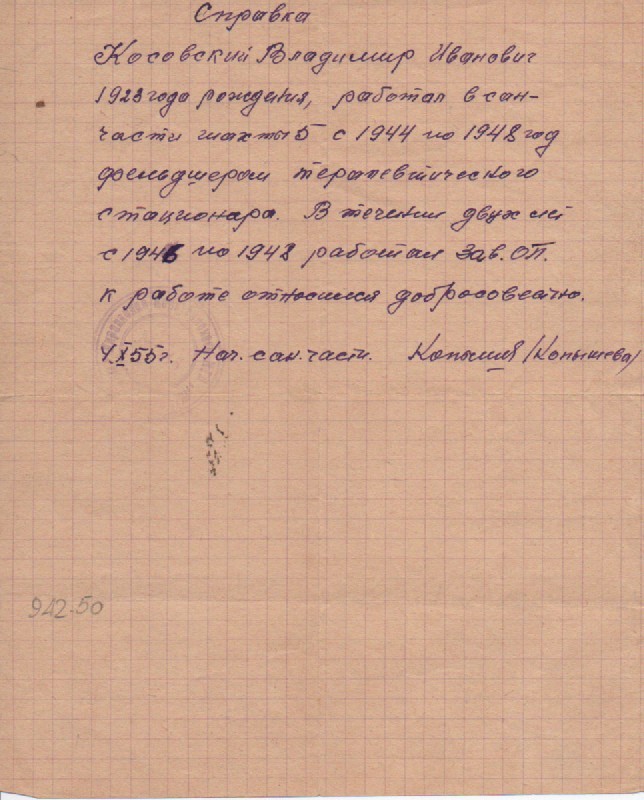 Справка
Косовский Владимир Иванович
1923 года рождения, работал в сан-
части шахты 5 с 1944 по 1948 год
фельдшером терапевтического
стационара. В течении двух лет
с 1946 по 1948 работал Зав. ОП.
к работе относился добросовестно.
4.X 55 г. Нач. сан. части.
942-50